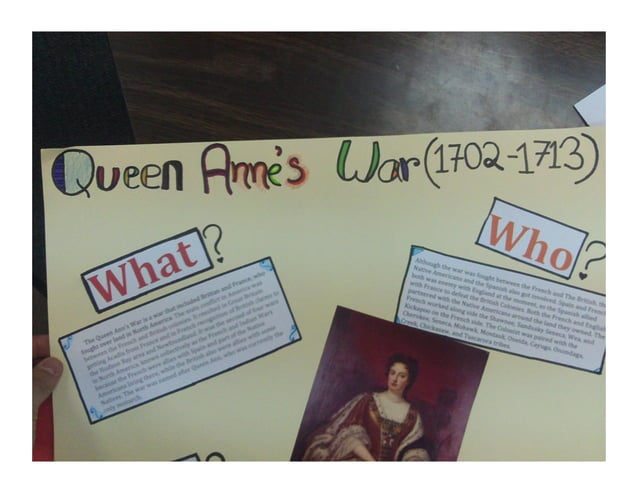 Queen Anne's War (1702-1713)
What?
The Queen Ann's War is a war that included Britian and France, who
fought over land in North America. The states conflict in America was
between the French and British colonists. It resulted in Great Britain
getting Acadia from France and in French resignation of claims to
the Hudson Bay area and Newfoundland. It was the second of four wars
in North America, known collectively as the French and Indian Wars
because the French were allies with Spain and part of the Native
Americans living there, while the British also were allies with some
Natives. The war was named after Queen Ann, who was currently the
only monarch.
Who?
Although the war was fought between the French and The British, the
Native Americans and the Spanish also got involved. Spain and France
both was enemy with England at the moment, so the Spanish allied
with France to defeat the British Colonies. Both the French and English
partnered with the Native Americans around the land they owned. The
French worked along side the Shawnee, Sandusky Seneca, Wea, and
Kickapoo on the French side. The Colonist was paired with the
Cherokee, Seneca, Mohawk, Montauk, Oneida, Cayuga, Onondaga,
Creek, Chickasaw, and Tuscarora tribes.
?